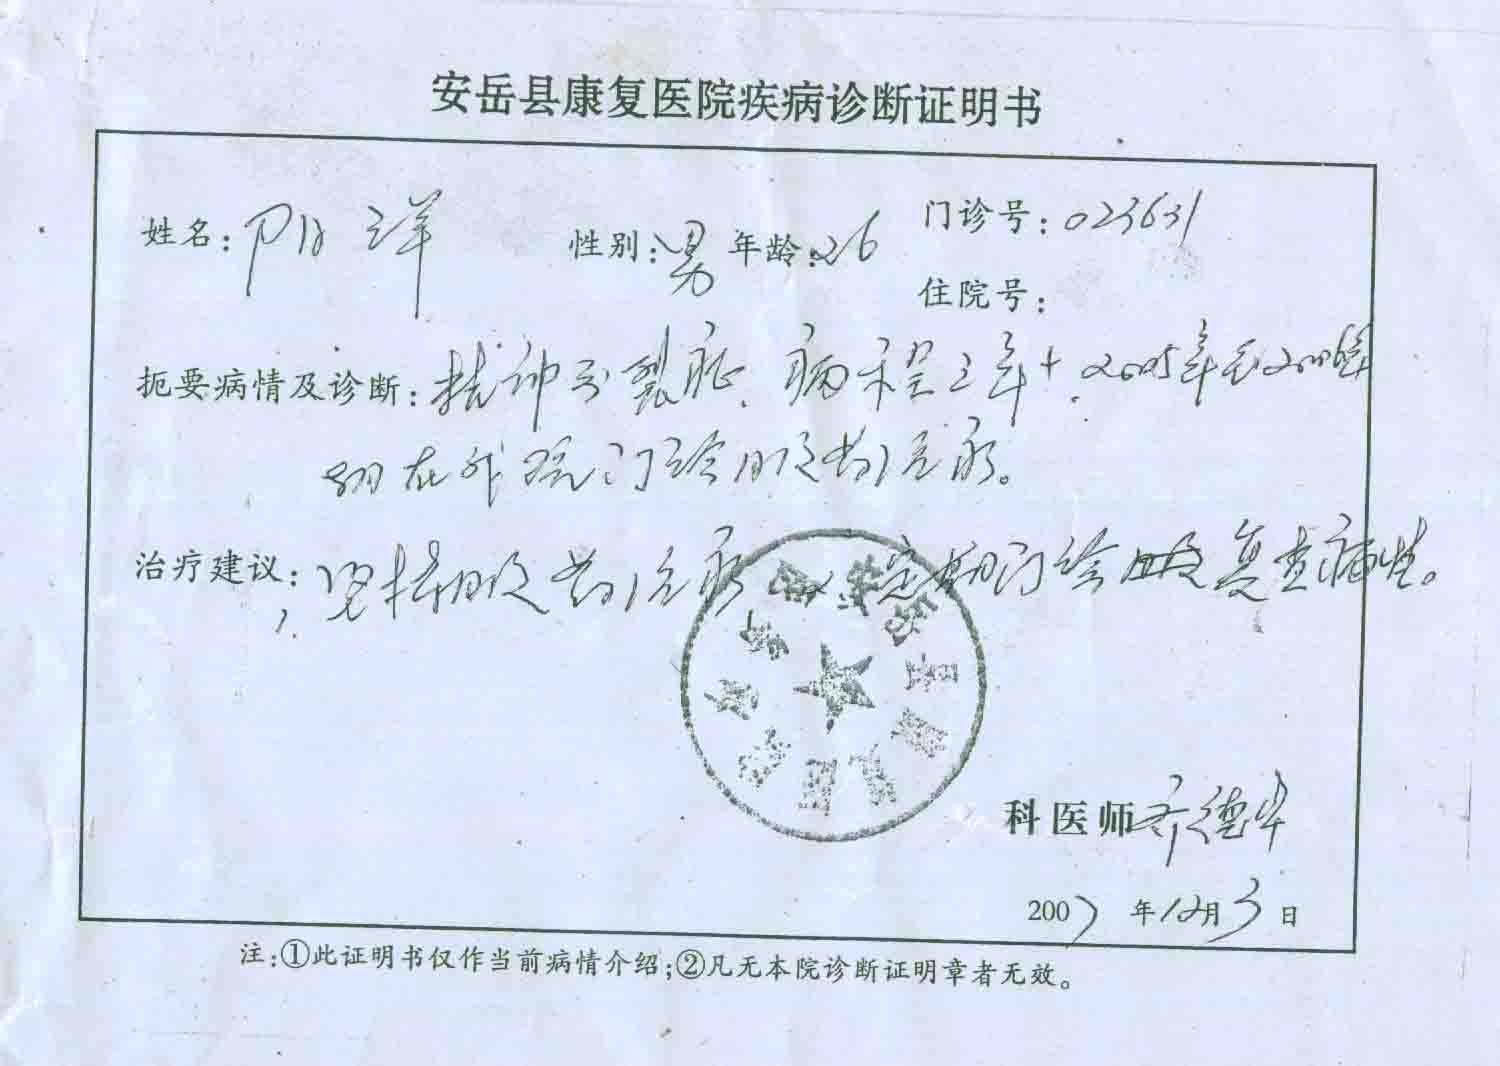 安岳县康复医院疾病诊断证明书
姓名: 阳洋 性别: 男 年龄: 26 门诊号: 023631
住院号:
扼要病情及诊断: 精神分裂症、病程三年+. 2005年至2006年
均在我院门诊服药治疗。
治疗建议: 坚持服药治疗 定期门诊 复查病情。
1.
科医师 德华
2007年12月3日
注:①此证明书仅作当前病情介绍;②凡无本院诊断证明章者无效。